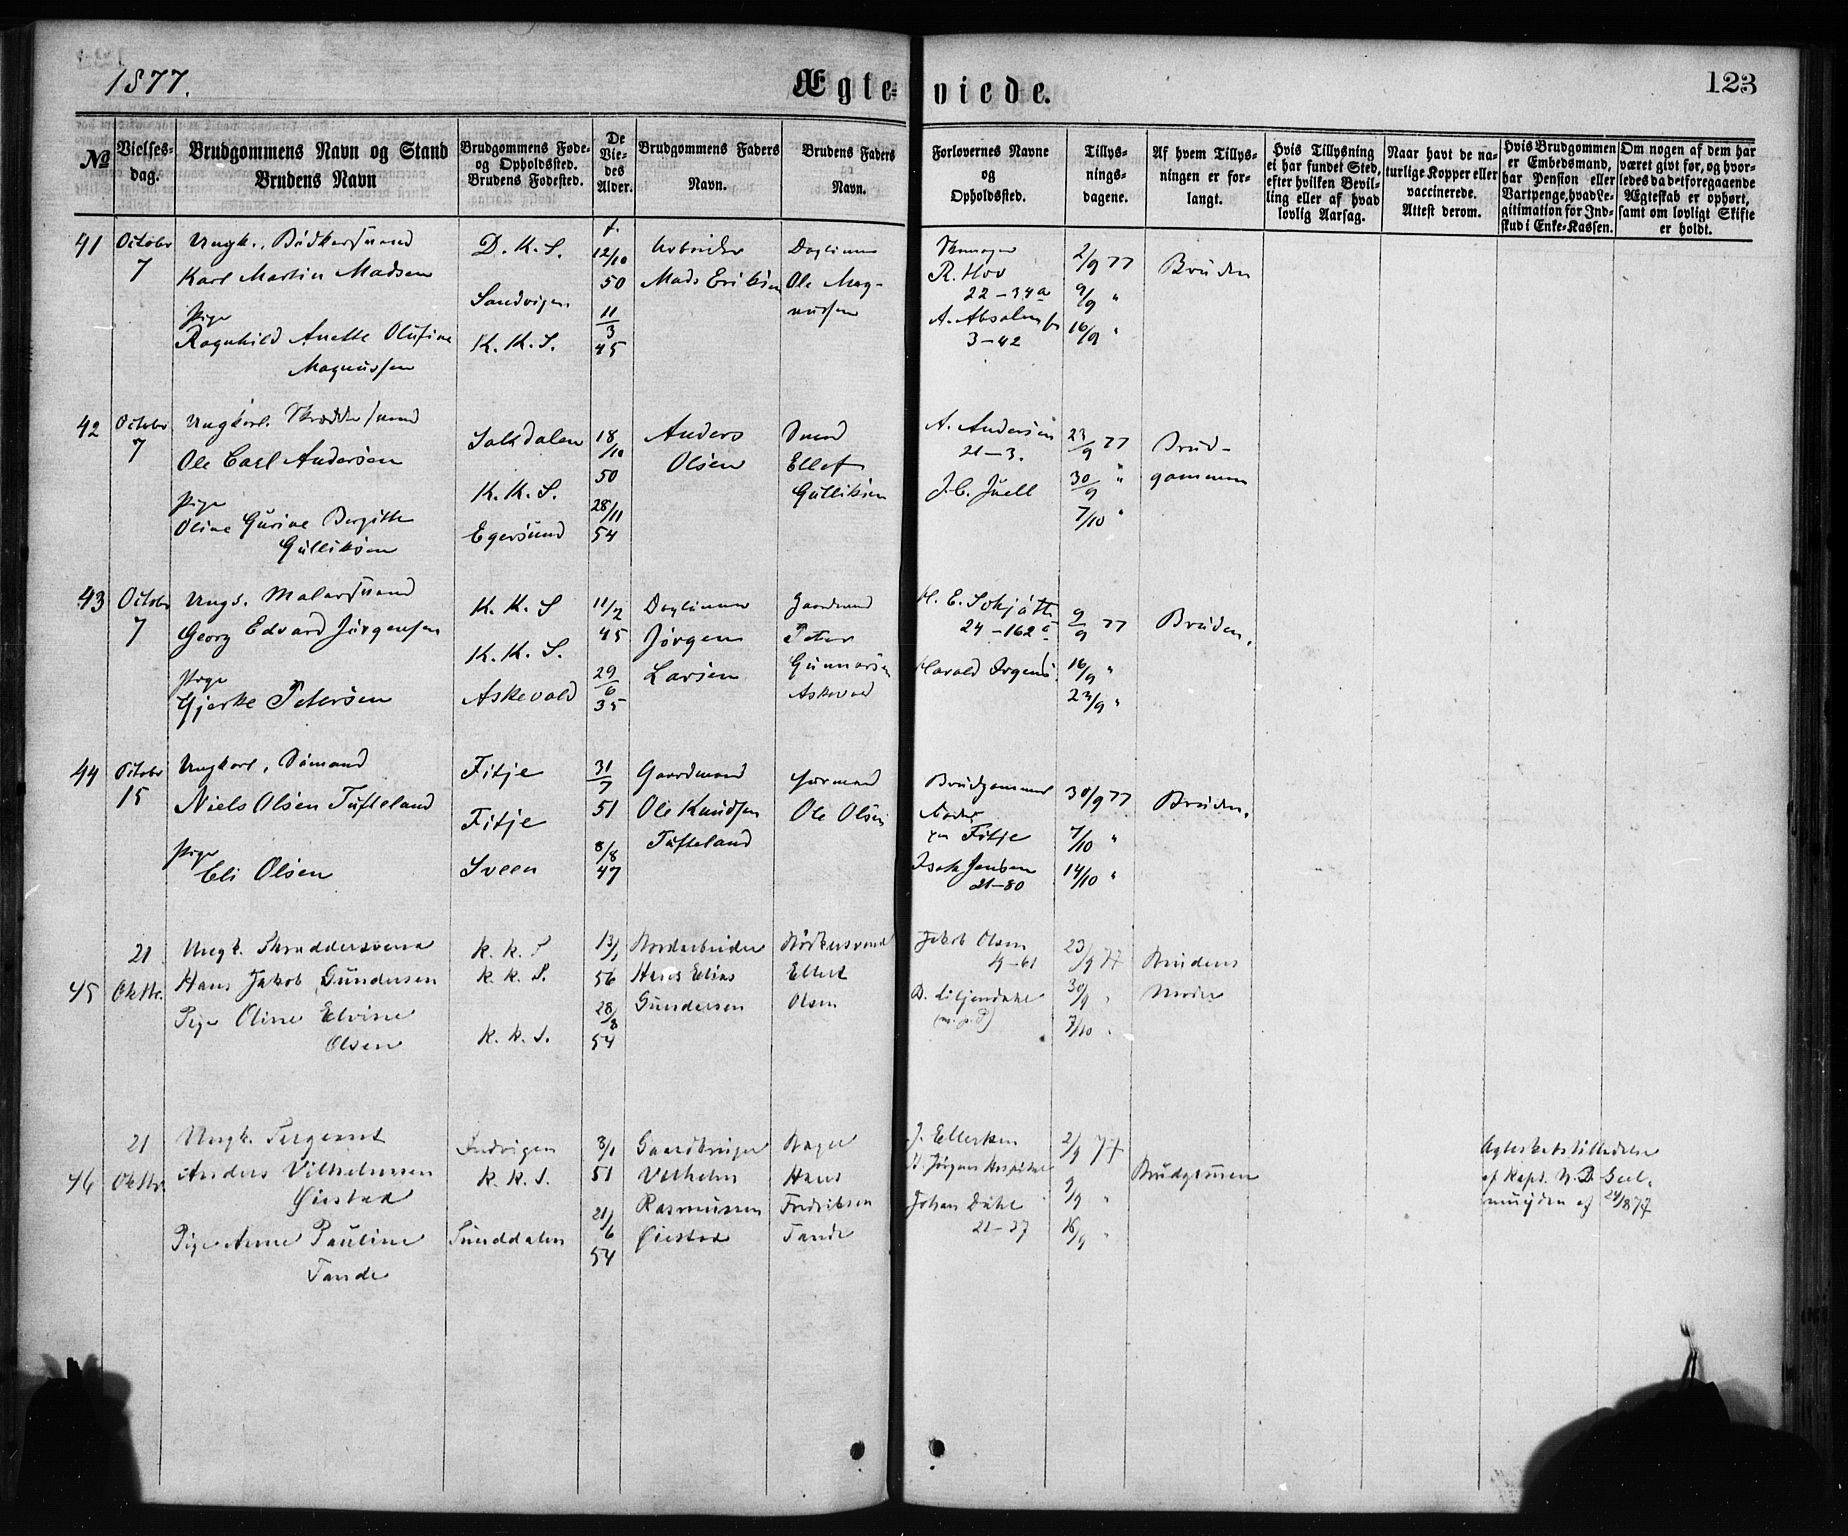 1877.
Ægte-
viede.
123
No
Vielses-
dag.
Brudgommens Navn og Stand
Brudens Navn
Brudgommens Føde-
og Opholdssted.
Brudens Fødested.
De
Vie-
des
Alder.
Brudgommens Faders
Navn.
Brudens Faders
Navn.
Forlovernes Navne
og
Opholdssted.
Tillys-
nings-
dagene.
Af hvem Tillys-
ningen er for-
langt.
Hvis Tillysning
ei har fundet Sted,
efter hvilken Bevil-
ling eller af hvad
lovlig Aarsag.
Naar havt de na-
turlige Kopper eller
vaccinerede.
Attest derom.
Hvis Brudgommen
er Embedsmand,
har Pension eller
Vartpenge, hvad Le-
gitimation for Ind-
skud i Enke-Kassen.
Om nogen af dem har
været givt før, og hvor-
ledes da det foregaaende
Ægteskab er ophørt,
samt om lovligt Skifte
er holdt.
41
Octobr
7
Ungk., Bødkersvend
Karl Martin Madsen
Pige
Ragnhild Anette Olufine
Magnussen
D. K. S.
Sandvigen
K. K. S.
f.
12/10
50
11/3
45
Arbeider
Mads Eriksen
Daglønner
Ole Mag-
nussen
Skomager
R. Hov
22 – 34a
A. Absalonsen
3 – 42
2/9 77
9/9 "
16/9 "
Bruden
42
Octobr
7
Ungkarl. Skræddersvend
Ole Carl Andersen
Pige
Oline Gurine Bergitte
Gulliksen
K. K. S.
Egersund
18/10
50
28/11
54
Anders
Olsen
Smed
Ellef
Gulliksen
A. Andersen
21 – 3.
J. C. Juell
23/9 77
30/9 "
7/10 "
Brud-
gommen
43
Octobr
7
Ungk. Malersvend
Georg Edvard Jørgensen
Pige
Gjerke Petersen
K. K. S
K. K. S.
Askevold
11/2
45
29/6
35
Daglønner
Jørgen
Larsen
Gaardmand
Peter
Gunnarsen
Askevold
24 – 162
Harald Irgens
9/9 77
16/9 "
23/9 "
Bruden.
44
Octobr
15
Ungkarl, Sømand
Niels Olsen Tufteland
Pige
Eli Olsen
Fitje
Fitje
Sveen
31/7
51
8/8
47
Gaardmand
Ole Knudsen
Tufteland
Ole Olsen
Brudgommens
Fader
paa Fitje
Isak Jensen
21 – 80
30/9 77
7/10 "
14/10 "
Bruden.
45
21
Oktbr.
Ungk. Skræddersvend
Hans Jakob Gundersen
Pige Oline Elvine
Olsen
K. K. S
K. K. S.
K. K. S.
13/1
56
28/8
54
Hans Elias
Gundersen
Bødkersvend
Ellert
Olsen
Jakob Olsen
4 – 61
B. Liljendahl
23/9 77
30/9 "
7/10 "
Brudens
Moder
46
21
Oktbr.
Ungk. Sergeant
Anders Vilhelmsen
Øiestad
Pige Anne Pauline
Tande
Indvigen
K. K. S.
Sunddalen
8/1
51
21/6
54
Gaardbruger
Vilhelm
Rasmussen
Øiestad
Bager
Hans
Fredriksen
Tande
J. Ellertsen
St. Jørgens Hospital
Johan Dahl
21 – 37
2/9 77
9/9 "
16/9 "
Brudgommen
Ægteskabstilladelse
af Kapt. N. D. Geel-
muyden af 24/8 77